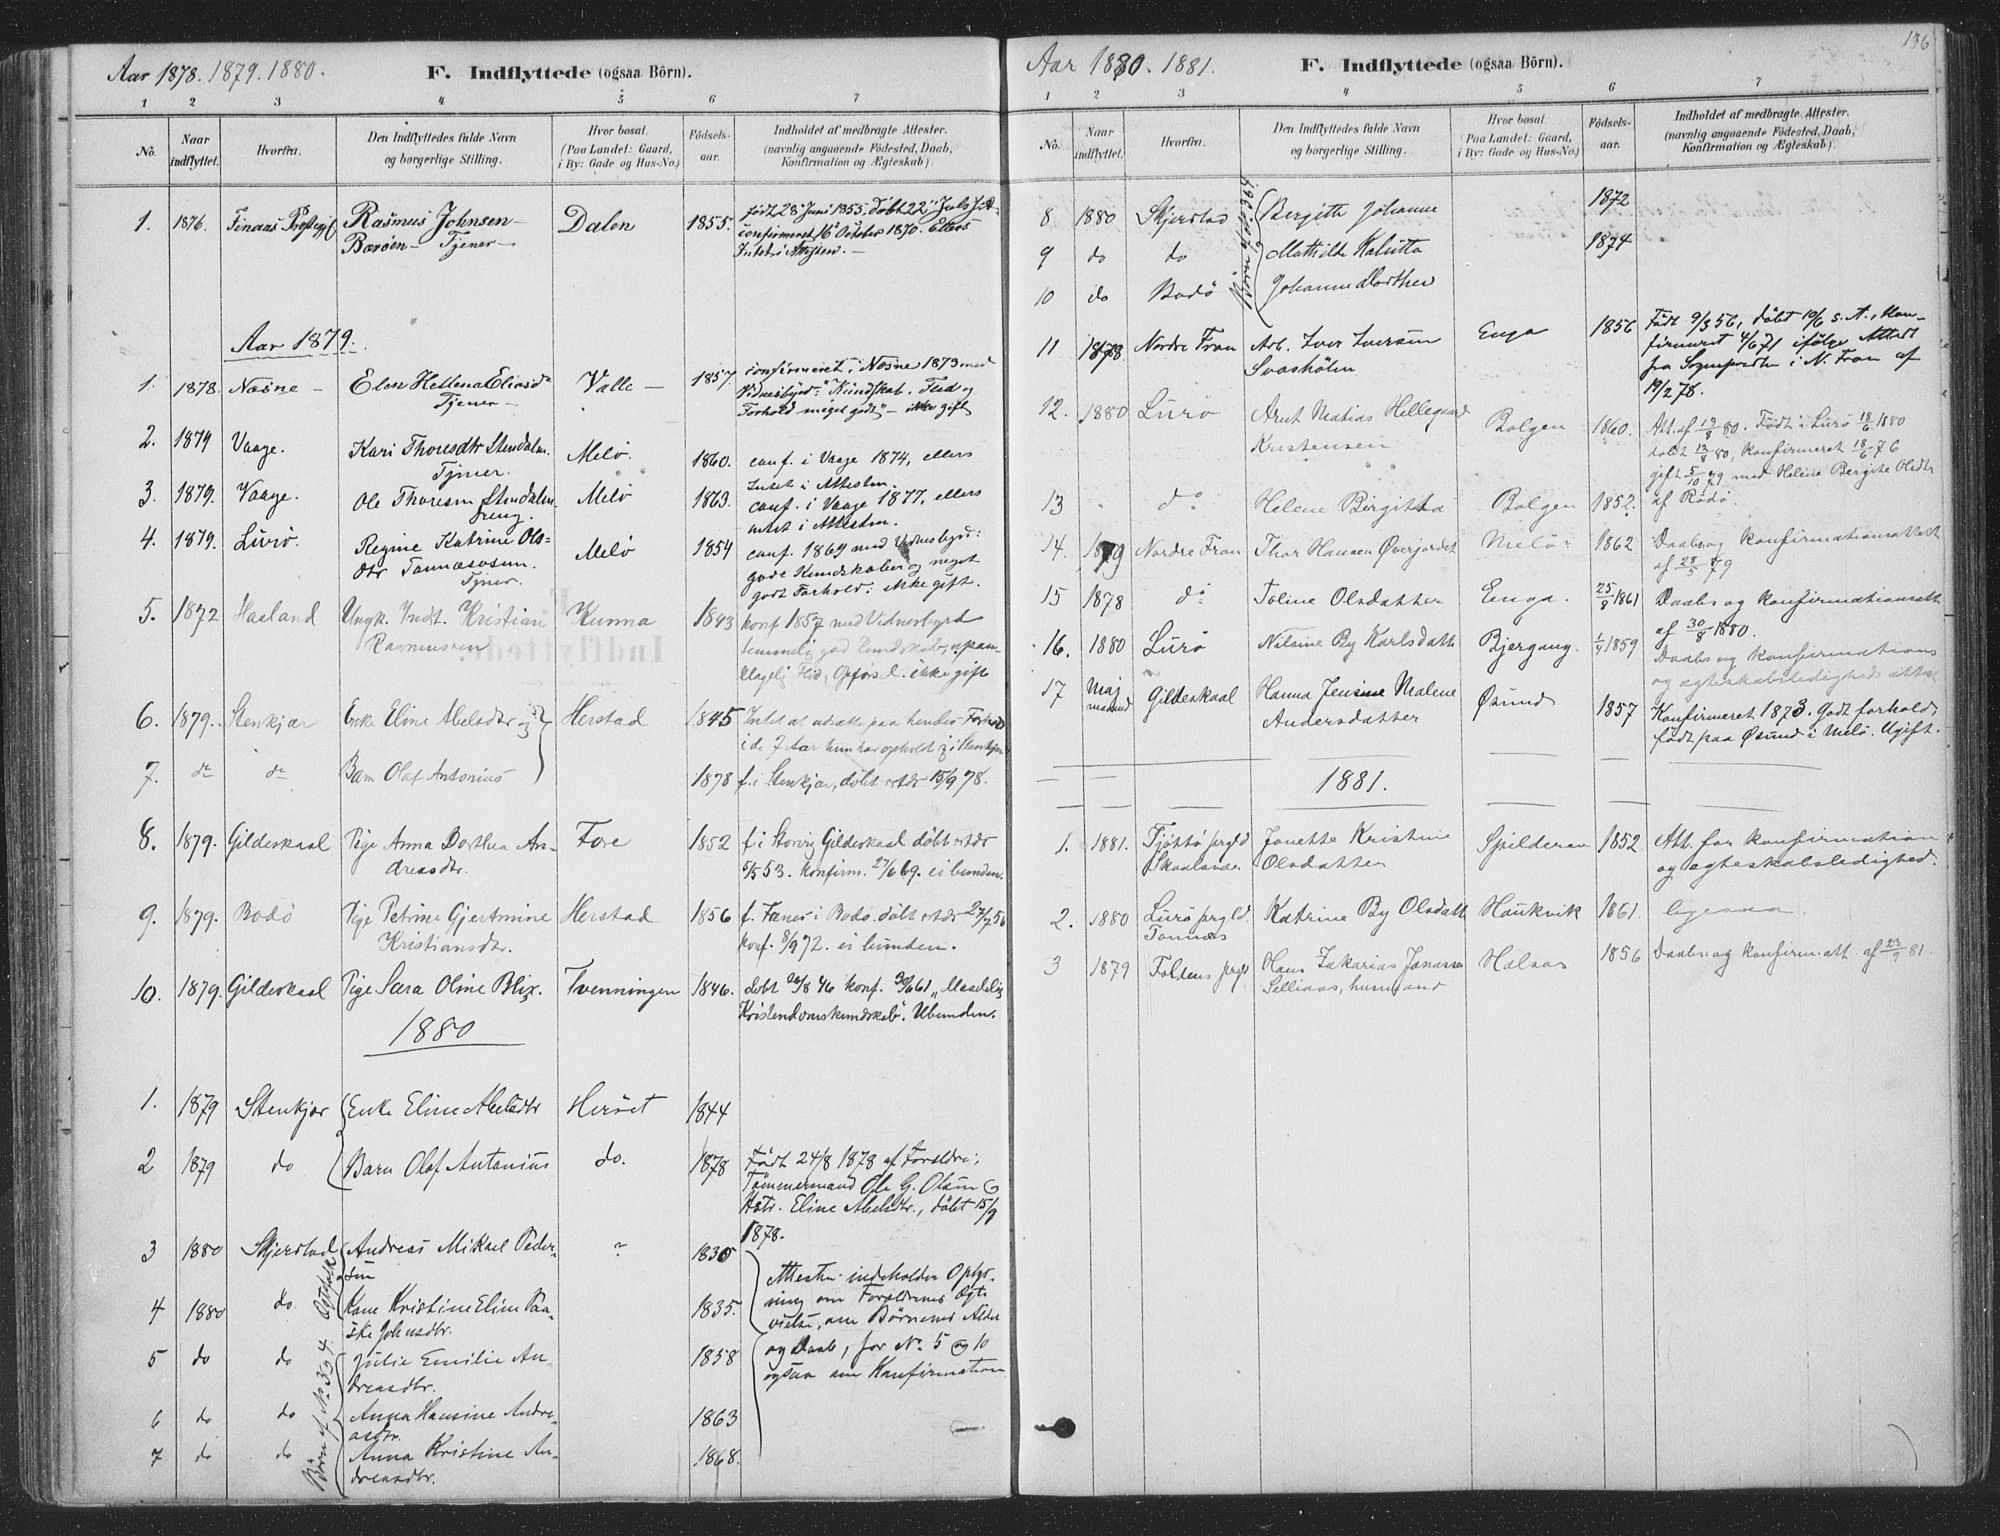 Aar 1878. 1879. 1880.
F. Indflyttede (ogsaa Börn).
1 2 3 4 5 6 7
No. Naar indflyttet. Hvorfra. Den Indflyttedes fulde Navn og borgerlige Stilling. Hvor bosat. (Paa Landet: Gaard, i By: Gade og Hus-No.) Födsels-aar. Indholdet af medbragte Attester. (navnlig angaaende Födested, Daab, Konfirmation og Ægteskab).
1. 1876. Rasmus Johnsen Dalen 1855. født 28 Juni 1855, døbt 22 Juli
Barøen – Tjener – confirmeret 16 October 1870. Ellers
Intet i Attesten. –
Aar 1879.
1. 1878. Nesne – Elen Hellena Eliasd. Valle – 1857. confirmeret i Nesne 1873 med
Tjener – Vidnesbyrd: "Kundskab, Flid og
Forhold meget godt" – ikke gift
2. 1879 Vaage. Kari Thoresdtr Stendalen. Melö. 1860. conf. i Vaage 1874, ellers
Tjener. Intet i Attesten.
3. 1879. Vaage. Ole Thoresen Stendalen Melö 1863. conf. i Vaage 1877, ellers
Dreng. intet i Attesten.
4. 1879. Lurö. Regine Katrine Ols- Melö 1854 conf. 1869 med Vidnesbyrd:
dtr Tonnesosen. gode Kundskaber og meget
Tjener. godt Forhold: ikke gift.
5. 1872 Ungk. Indt. Kristian Kunna 1843 konf 1857 med Vidnesbyrd
Rasmussen temmelig god Kundskab, upaa-
klagelig Flid, Opførsel. ikke gift
6. 1879. Stenkjær Enke Eline Abelsdtr og Herstad 1845 Intet at udsætte paa hendes Forhold
i de 7 Aar hun har opholdt sig i Stenkjær
7. do do Barn Olaf Antonius 1878 f. i Stenkjær, døbt 15/9 78.
8. 1879. Gildeskaal Pige Anna Dorthea An- Fore 1852 f. i Storvig Gildeskaal døbt
dreasdtr. 5/5 53. konfirm. 27/6 69. ei bunden.
9. 1879. Bodö Pige Petrine Gjertmine Herstad 1856 f. i Bodö. døbt 27/7 56
Kristiansdtr. konf. 8/9 72. ei bunden.
10. 1879. Gildeskaal Pige Sara Oline Blix. Tvenningen 1846. døbt 26/8 46 konf. 30/6 61 "Maadelig
Kristendomskundskab". Ubunden.
1880
1. 1879 Stenkjær Enke Eline Abelsdtr 1844
2 1879 do Barn Olaf Antonius do. 1878 Født 24/8 1878 af Forældre:
Tömmermand Ole G. Olsen &
Hstr. Eline Abelsdtr., döbt 15/9
1878.
3 1880 Skjerstad Andreas Mikael Peder- 1830
sen Attesten indeholder Oplys-
4 1880 do Kone Kristine Elen Paa- 1835. ning om Forældrenes Ægte
ske Johnsdtr. vielse, om Børnenes Alder
Ægtefolk
5 do do Julie Emilie An- 1858 og Daab, for No. 5 og 10
dreasdtr. ogsaa om Konfirmation
6 do do Anna Hansine Andre- 1863
asdtr.
7 do do Anna Kristine An- 1868.
dreasdtr.
Börn af No. 3 og 4.
Aar 1880. 1881.
F. Indflyttede (ogsaa Börn).
136
1 2 3 4 5 6 7
No. Naar indflyttet. Hvorfra. Den Indflyttedes fulde Navn og borgerlige Stilling. Hvor bosat. (Paa Landet: Gaard, i By: Gade og Hus-No.) Födsels-aar. Indholdet af medbragte Attester. (navnlig angaaende Födested, Daab, Konfirmation og Ægteskab).
Börn af No 3 og 4
8 1880 Skjerstad Bergitte Johanne 1872
9 do do Mathilde 1874
10 do Bodö Johanne Dorthea
11 1878 Nordre Fron Arb. Iver Iversen Enga 1856 Født 9/3 56, döbt 10/6 s. A., Kon-
Svashölen firmeret 4/6 71 ifölge Attest
fra Sognepresten i N. Fron af
19/2 78.
12. 1880 Lurö Arnt Matias Hellegaard Bolgen 1860. Att. af 19/8 80. Født i Lurö 18/6 1880
Kristensen døbt 13/8 80, konfirmeret 18/6 76
gift 5/10 79 med Helene Bergite Olsdtr
13 do Helene Birgitta Bolgen 1852. af Rödö.
14. 1879 Nordre Fron Thor Hansen Øverjordet Melö 1862 Daabs og konfirmationsattest
af 28/5 79
15 1878 do Toline Olsdatter Enga. 25/8 1861 Daabs og konfirmationsatt.
af 30/8 1880.
16. 1880 Lurö Nilsine By Karlsdatt. Bjergang. 1/4 1859 Daabs og konfirmations
og ægteskabsledigheds attes.
17 Maj maaned Gildeskaal Hanna Jensine Malene Øsund 1857 Konfirmeret 1873. Godt forhold,
Andersdatter født paa Øsund i Melö. Ugift.
1881.
1. 1881. Tjøttø prgld Jonette Kristine Spilderen 1852. Att. for konfirmation
Olsdatter og ægteskabsledighed.
2. 1880 Lurö prgld. Katrine By Olsdatt. Haukvik 1861. ligesaa.
Tonnes
3 1879 Foldens prgld Hans Zakarias Halsos 1856 Daabs og konfirm. att. af 23/9 81.
husmand